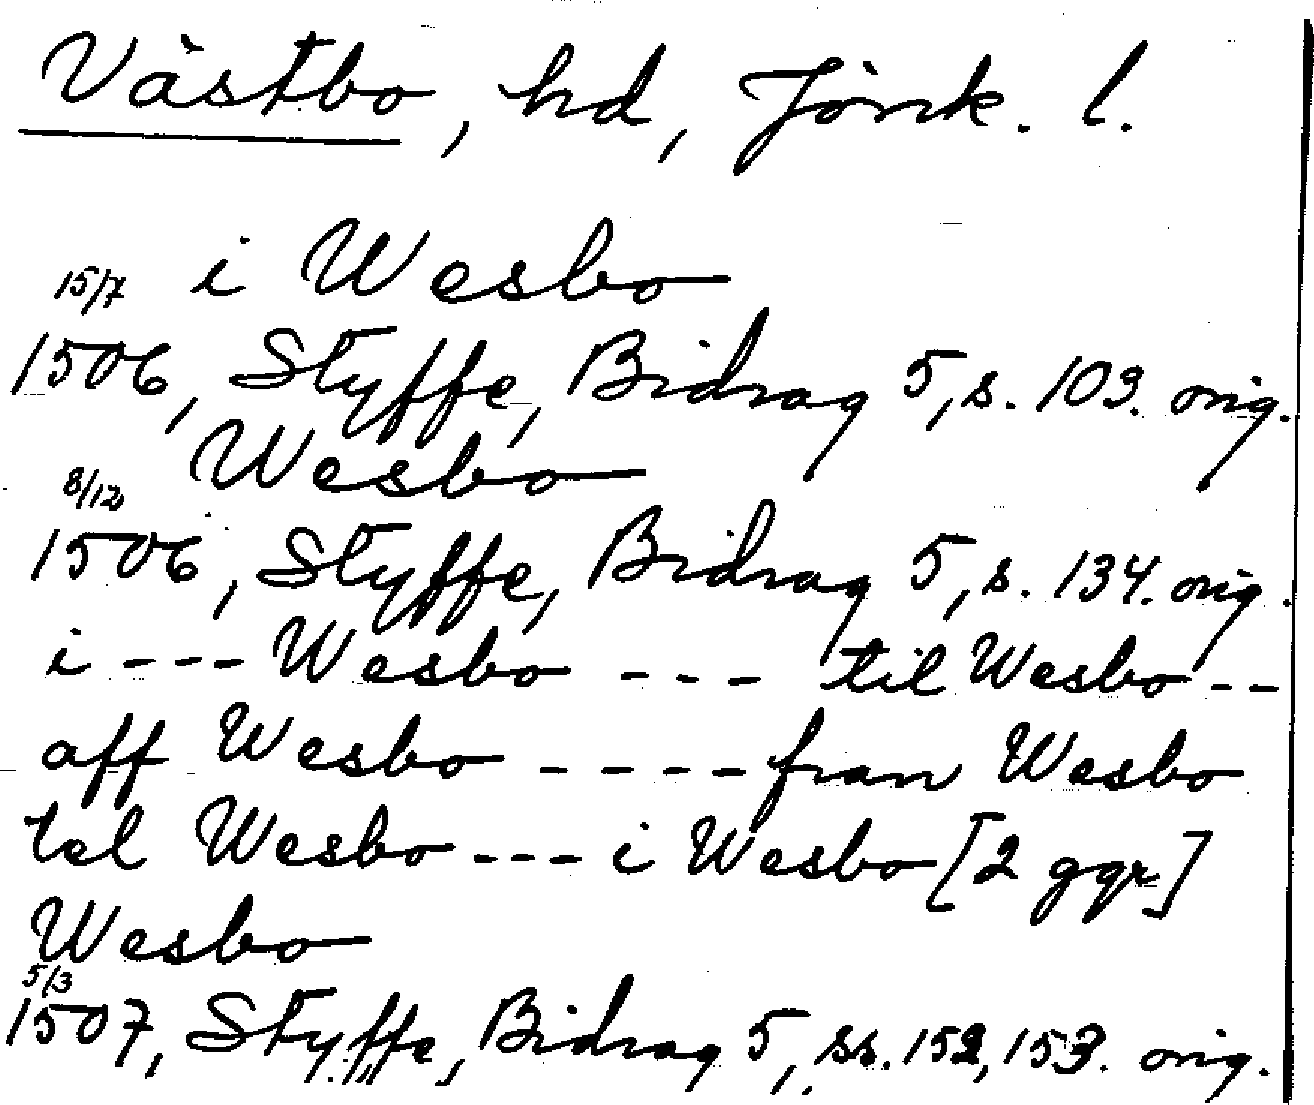 Västbo, hd, Jönk. l.
15/7 i Wesbo
1506, Styffe, Bidrag 5, s. 103. orig.
8/12 Wesbo
1506, Styffe, Bidrag 5, s. 134. orig.
i --- Wesbo --- til Wesbo --
aff Wesbo ---- fran Wesbo
tel Wesbo --- i Wesbo [2 ggr]
Wesbo
5/3
1507, Styffe, Bidrag 5, ss. 152, 153. orig.